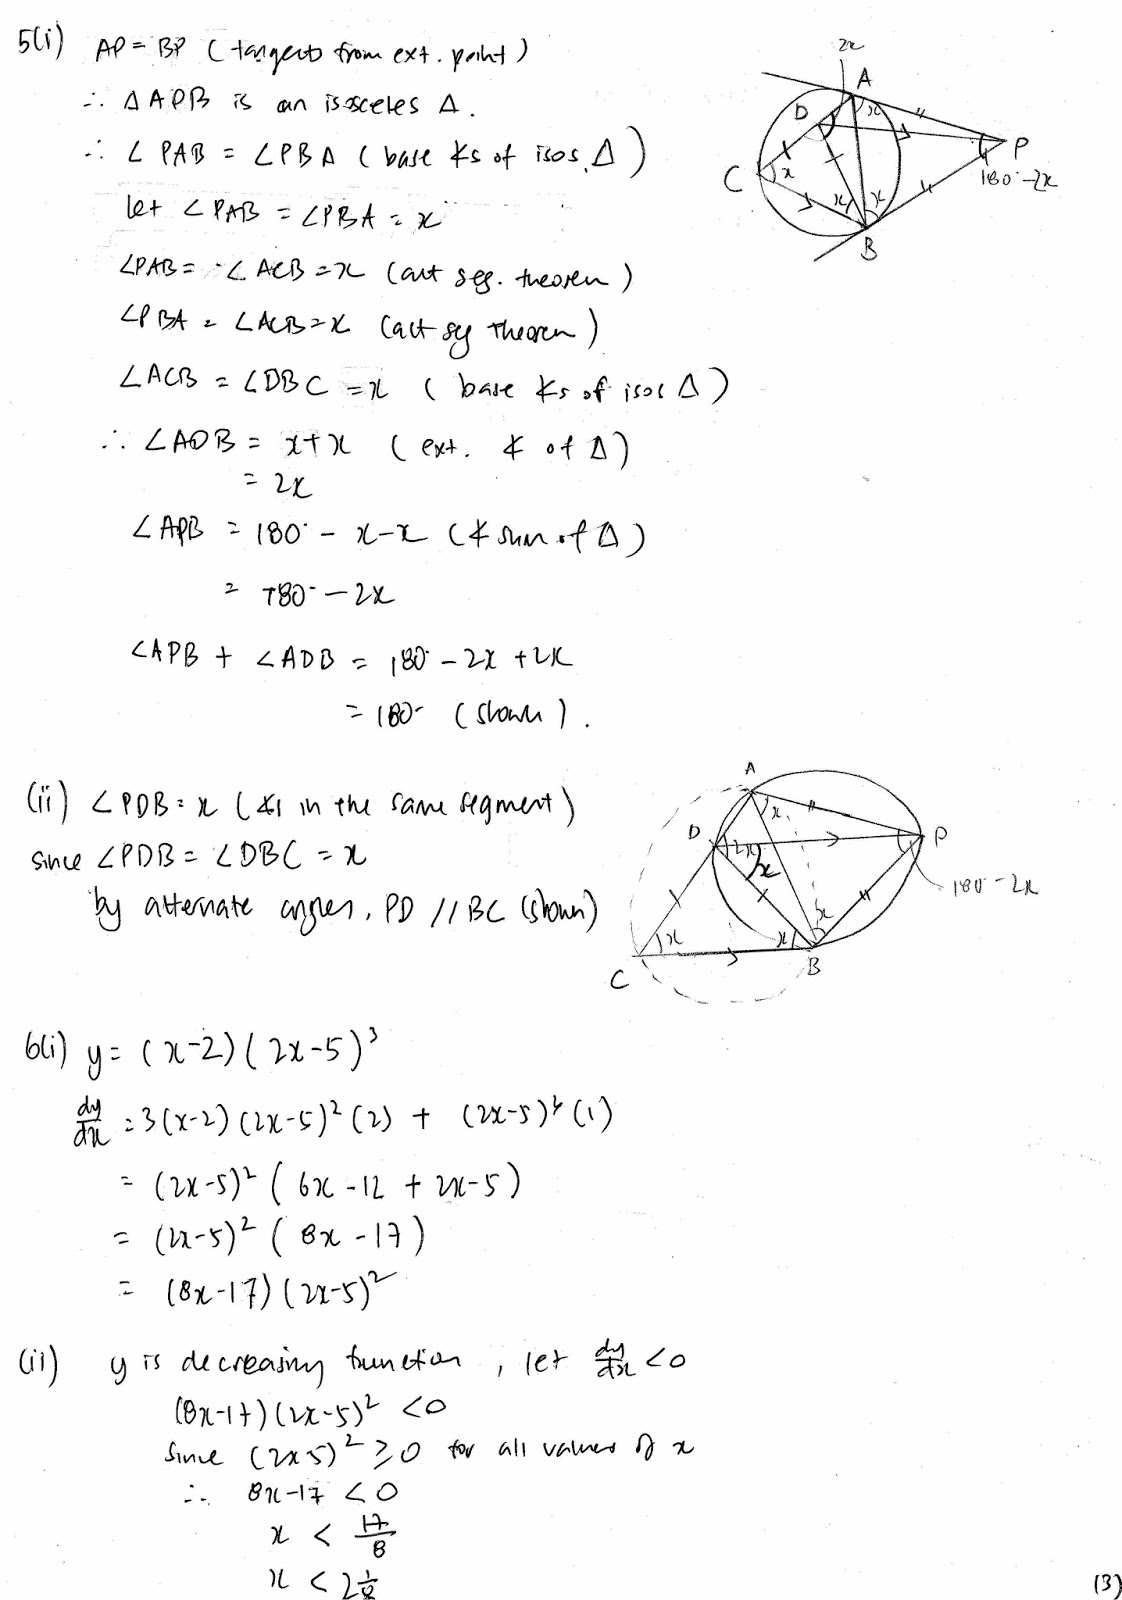 5(i) AP = BP (tangents from ext. point)
∴ △APB is an isosceles △.
∴ ∠PAB = ∠PBA (base ∠s of isos. △)
let ∠PAB = ∠PBA = x
∠PAB = ∠ACB = x (alt seg. theorem)
∠PBA = ∠ACB = x (alt seg theorem)
∠ACB = ∠DBC = x (base ∠s of isos △)
∴ ∠ADB = x + x (ext. ∠ of △)
= 2x
∠APB = 180° - x - x (∠ sum of △)
= 180° - 2x
∠APB + ∠ADB = 180° - 2x + 2x
= 180° (shown).
2x
A
D
x
P
C
x
180° - 2x
x
x
B
(ii) ∠PDB = x (∠s in the same segment)
since ∠PDB = ∠DBC = x
by alternate angles, PD // BC (shown)
A
x
D
2x
x
P
180° - 2x
x
x
x
B
C
6(i) y = (x-2)(2x-5)³
dy/dx = 3(x-2)(2x-5)²(2) + (2x-5)³(1)
= (2x-5)² (6x - 12 + 2x - 5)
= (2x-5)² (8x - 17)
= (8x-17)(2x-5)²
(ii) y is decreasing function, let dy/dx < 0
(8x-17)(2x-5)² < 0
since (2x-5)² ≥ 0 for all values of x
∴ 8x-17 < 0
x < 17/8
x < 2 1/8
(3)